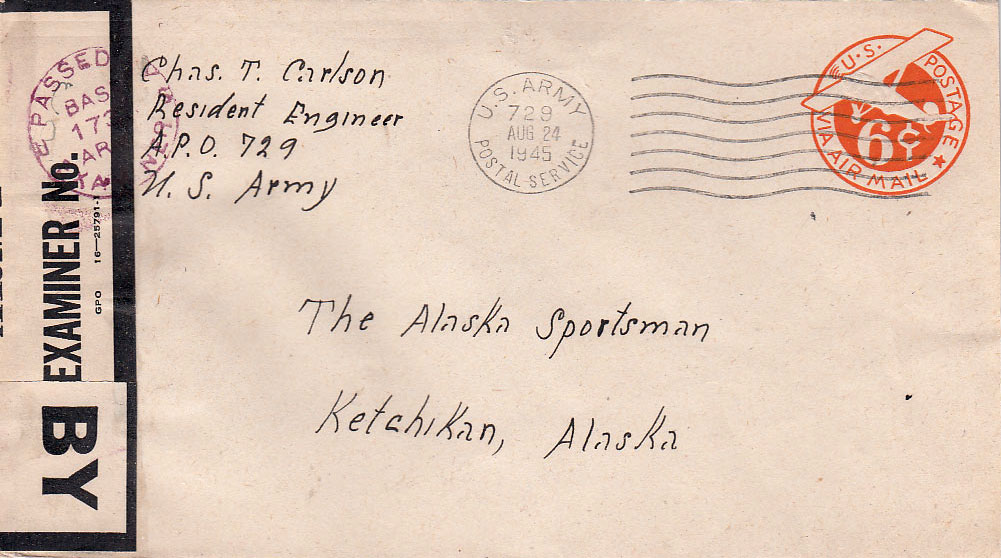 Chas. T. Carlson
Resident Engineer
A.P.O. 729
U. S. Army
U.S. ARMY
729
AUG 24
1945
POSTAL SERVICE
U.S. POSTAGE
6¢
VIA AIR MAIL
The Alaska Sportsman
Ketchikan, Alaska
PASSED
BAS
EXAMINER No.
GPO 16—25791-
BY